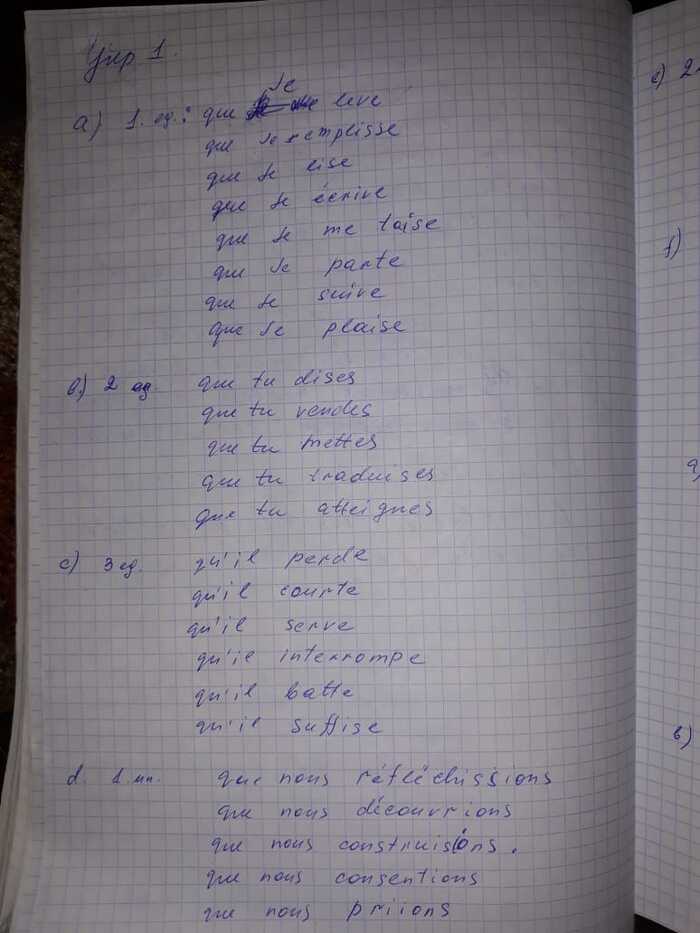 Упр 1.
a) 1. ед.: que je leve
que je remplisse
que je lise
que je écrive
que je me taise
que je parte
que je suive
que je plaise
b.) 2 ед. que tu dises
que tu vendes
que tu mettes
que tu traduises
que tu atteignes
c) 3 ед. qu'il perde
qu'il courte
qu'il serve
qu'il interrompe
qu'il batte
qu'il suffise
d. 1. мн. que nous réfléchissions
que nous découvrions
que nous construisions.
que nous consentions
que nous priions
e) 2
f)
b)